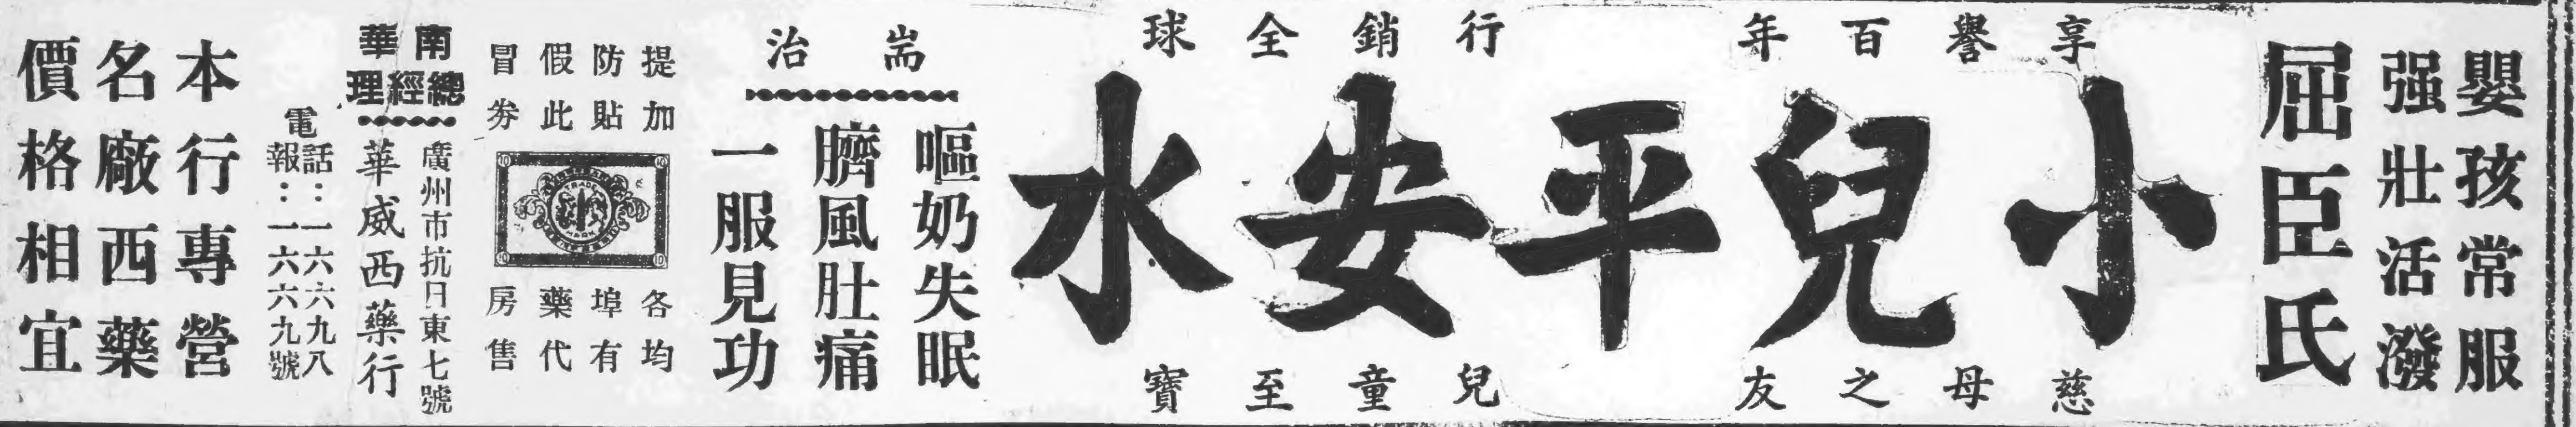 嬰孩常服
强壯活潑
屈臣氏
享譽百年
行銷全球
小兒平安水
慈母之友
兒童至寶
耑治
嘔奶失眠
臍風肚痛
一服見功
提加
防貼
假此
冒劵
TRADE
MARK
各均
埠有
藥代
房售
南華
總經理
廣州市抗日東七號
華威西藥行
電話：一六六九八
電報：一六六九號
本行專營
名廠西藥
價格相宜